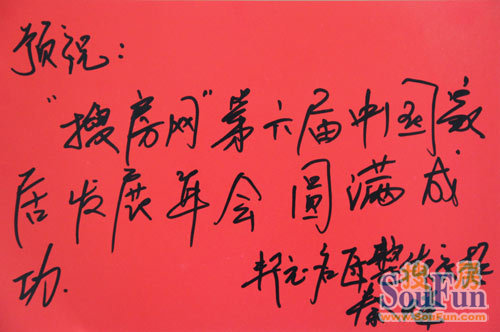 预祝：
“搜房网”第六届中国家
居发展年会圆满成
功.
搜房
SouFun
www.SouFun.com